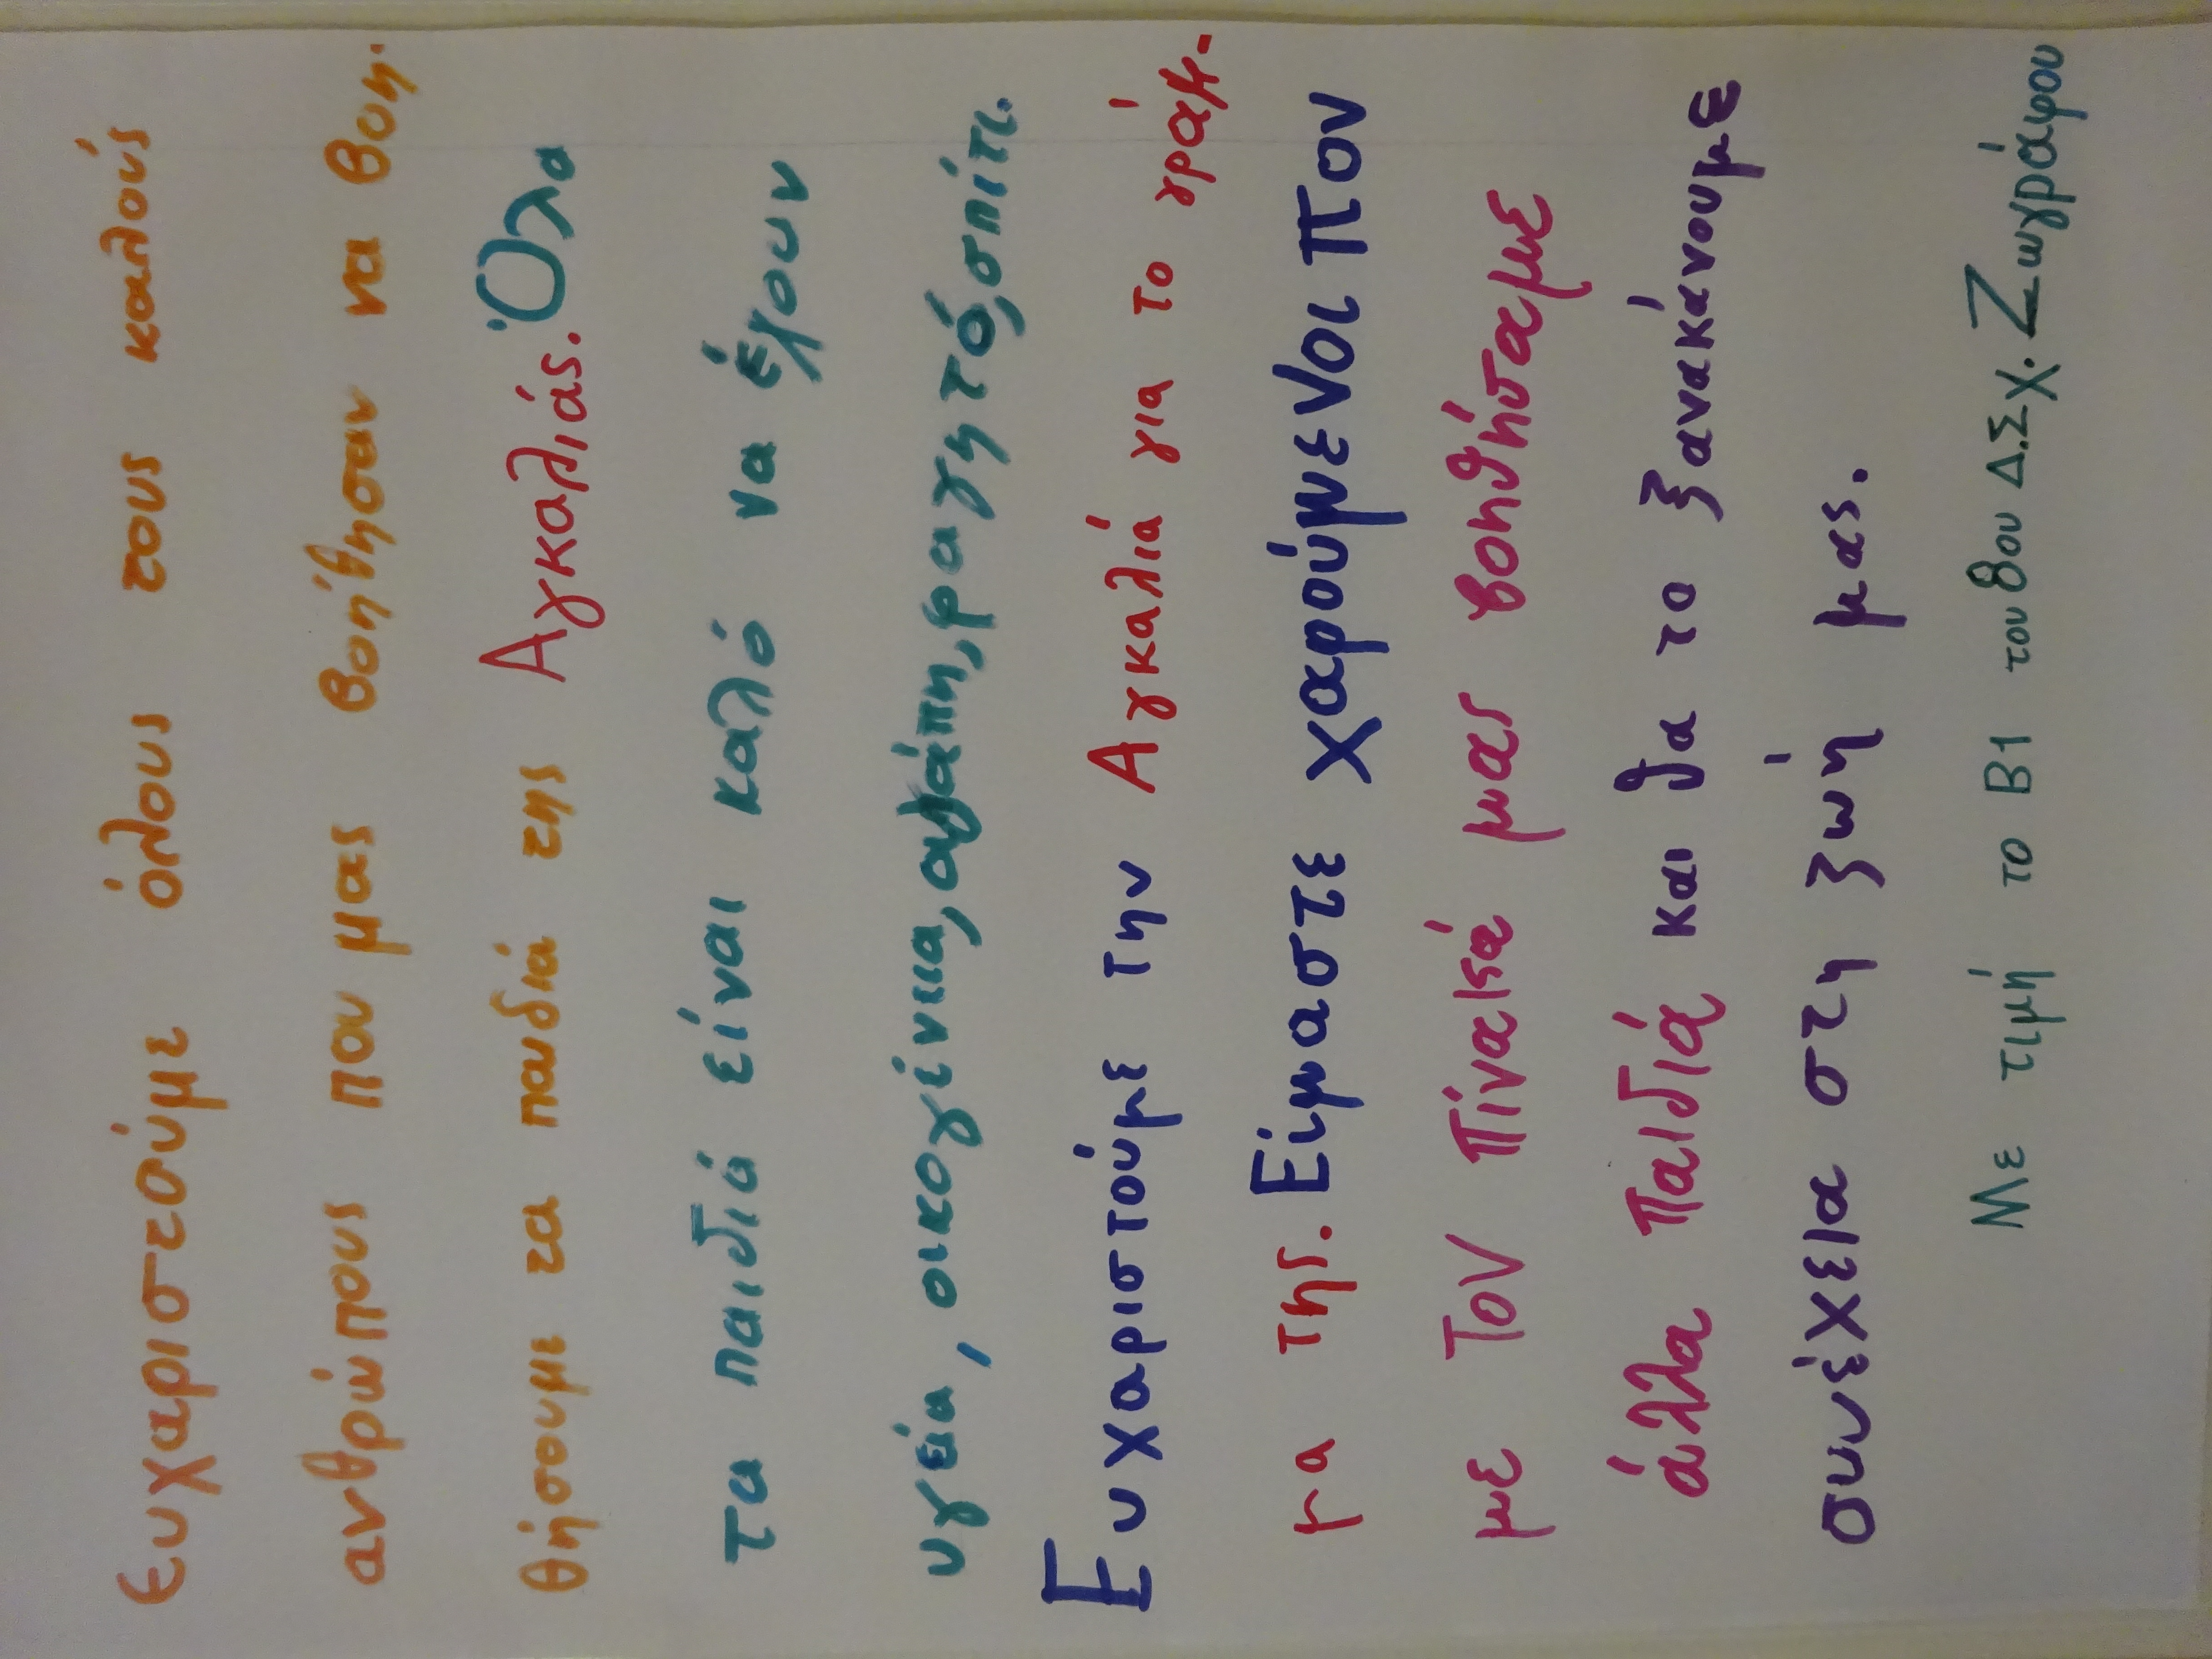 Ευχαριστούμε όλους τους καλούς
ανθρώπους που μας βοήθησαν να βοη-
θήσουμε τα παιδιά της Αγκαλιάς. Όλα
τα παιδιά είναι καλό να έχουν
υγεία, οικογένεια, αγάπη, φαγητό, σπίτι.
Ευχαριστούμε την Αγκαλιά για το γράμ-
μα της. Είμαστε χαρούμενοι που
με τον πίνακά μας βοηθήσαμε
άλλα παιδιά και θα το ξανακάνουμε
συνέχεια στη ζωή μας.
Με τιμή το Β1 του 8ου Δ.Σχ. Ζωγράφου